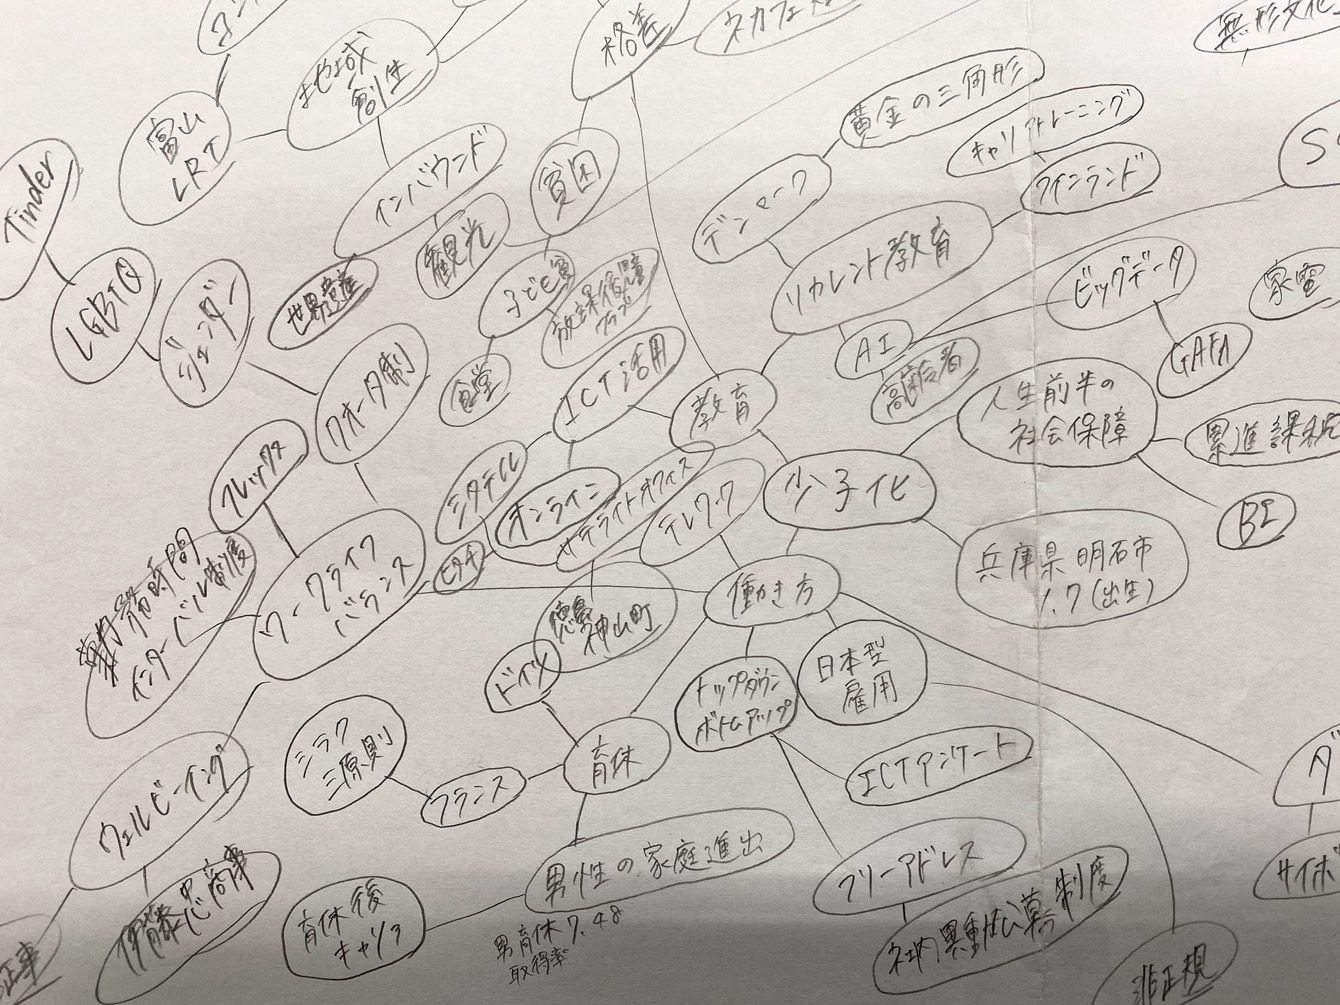 格差
ネカフェ
無形文化
地域
創生
黄金の三角形
キャリアトレーニング
富山
LRT
インバウンド
貧困
デンマーク
フィンランド
Tinder
観光
リカレント教育
LGBTQ
ジェンダー
世界遺産
子ども食
放課後児童
クラブ
ビッグデータ
家電
AI
GAFA
食堂
ICT活用
高齢者
教育
クオータ制
人生前半の
社会保障
累進課税
フレックス
オンライン
サテライトオフィス
テレワーク
少子化
BI
勤務時間
インターバル制度
ワークライフ
バランス
働き方
兵庫県明石市
1.7(出生)
徳島
神山町
ドイツ
トップダウン
ボトムアップ
日本型
雇用
シラク
三原則
フランス
育休
ICTアンケート
ウェルビーイング
男性の家庭進出
フリーアドレス
伊藤忠商事
育休後
キャリア
男育休7.48
取得率
社内異動公募制度
サイボ
非正規